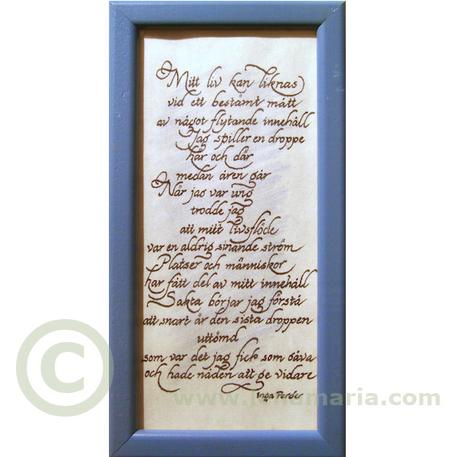 Mitt liv kan liknas
vid ett bestämt mått
av något flytande innehåll
Jag spiller en droppe
här och där
medan åren går
När jag var ung
trodde jag
att mitt livsflöde
var en aldrig sinande ström
Platser och människor
har fått del av mitt innehåll
Sakta börjar jag förstå
att snart är den sista droppen
uttömd
som var det jag fick som gåva
och hade nåden att ge vidare
Inga
©
maria.com